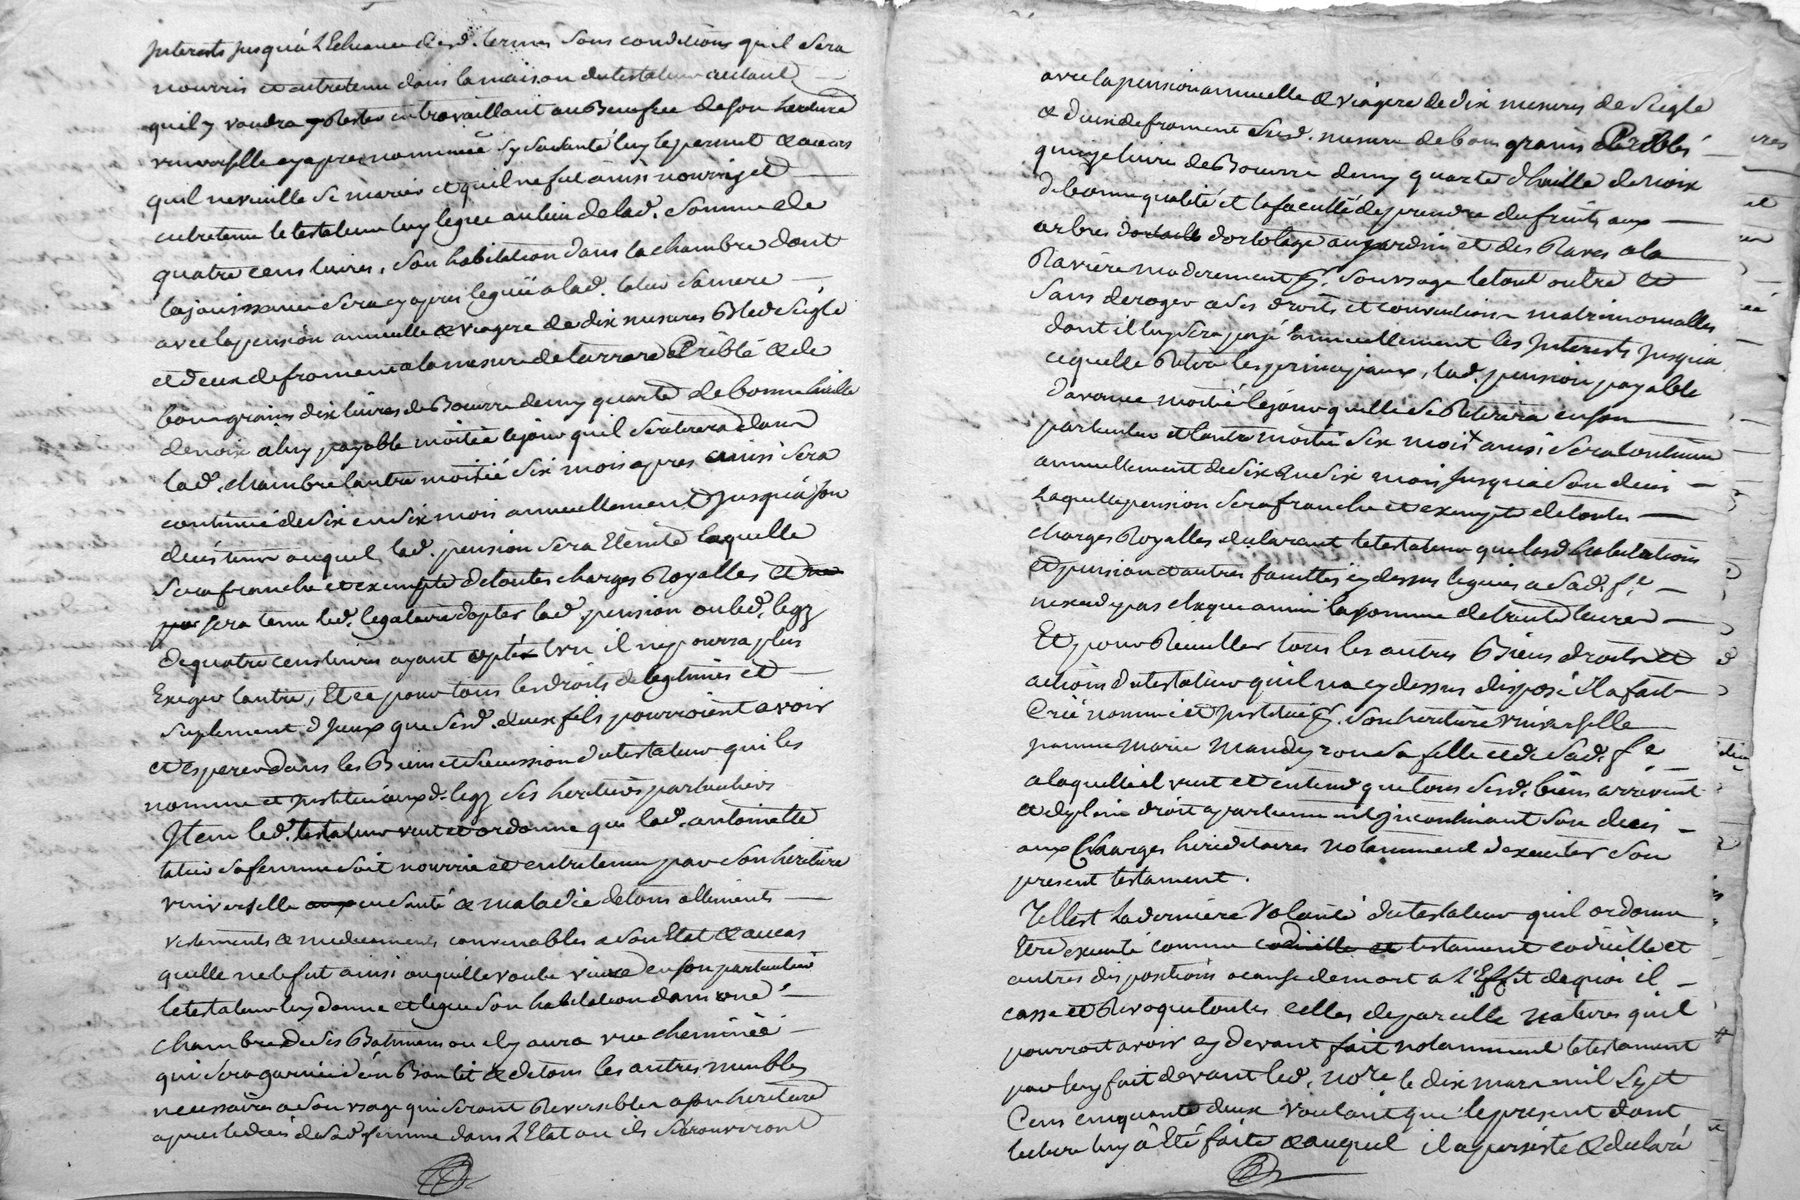 Interests jusqu'a l'Echeance desd. termes sous conditions quil sera
nourris et entretenu dans la maison du testateur autant
quil y voudra rester en travaillant au Benefice de son heritiere
universelle cy apres nommée sy sa santé luy le permet & au cas
quil ne veuille se marier et quil ne fut ainsi nourrij et
entretenu le testateur luy legue au lieu de lad. somme de
quatre cens livres, son habitation dans la chambre dont
la jouissance sera cy apres leguée a lad. sa mere
avec la pension annuelle & viagere de dix mesures Bled seigle
et deux de froment a la mesure de Criblé & de
bons grains dix livres de Beurre demy quarte de bonne huille
de noix a luy payable moitié le jour quil se retirera dans
lad. chambre l'autre moitié six mois apres ainsi sera
continué de six en six mois annuellement jusqu'a son
deces tems auquel lad. pension sera Eteinte laquelle
sera franche et exempte de toutes charges Royalles et ne
sera tenu led. legataire d'opter lad. pension ou led. legz
de quatre cens livres ayant opté l'un il ne pourra plus
Exiger l'autre, Et ce pour tous les droits de legitimes et
suplement d'Jceux que sesd. deux fils pourroient avoir
et esperer dans les Biens et succession du testateur qui les
nomme et Jnstitue aud. legz ses heritiers particuliers
Jtem led. testateur veut et ordonne que lad. antoinette
sa femme soit nourrie et entretenue par son heritiere
universelle en santé & maladie de tous alliments
vestements & medicaments convenables a son Etat & au cas
quelle ne le fut ainsi ou quelle voulut vivre en son particulier
le testateur luy donne et legue son habitation dans une
chambre de ses Batimens ou il y aura une cheminée
qui sera garnie d'un Bon lit & de tous les autres meubles
necessaires a son usage qui seront Reversibles a son heritiere
apres le deces de sad. femme dans l'Etat ou ils se trouveront
avec la pension annuelle & viagere de dix mesures de seigle
& deux de froment susd. mesure de bons grains Criblés
quinze livres de Beurre demy quarte d'huille de noix
de bonne qualité et la faculté de prendre du fruits aux
arbres d'ortolage au jardin et des Raves a la
Raviere moderement p. son usage le tout outre et
sans deroger a ses droits et conventions matrimonialles
dont il luy sera payé annuellement les Jnterests jusqu'a
ce quelle Retire les principaux, lad. pension payable
d'avance moitié le jour quelle se Retirera en son
particulier et l'autre moitié six mois ainsi sera continué
annuellement de six en six mois jusqu'a son deces
Laquelle pension sera franche et exempte de toutes
charges Royalles declarant le testateur que lesd. habitation
et pension et autres facultés cy dessus leguées a sad. fe.
n'excede pas chaque année la somme de trente livres
Et pour Recueillir tous les autres Biens droits et
actions du testateur quil n'a cy dessus disposé Jl a fait
Créé nommé et Jnstitué p. son heritiere universelle
jeanne Marie sa fille et de sad. fe.
a laquelle il veut et entend que tous sesd. biens arrivent
et de plein droit apartiennent incontinant son deces
aux Charges hereditaires notamment d'executer son
present testament.
Telle est La derniere Volonté du testateur quil ordonne
Etre executé comme codicille et testament codicille et
autres dispositions a cause de mort a l'Effet de quoi il
casse et Revoque toutes celles de pareille natures quil
pourroit avoir cy devant fait notamment le testament
par luy fait devant led. nore le dix mars mil sept
Cens cinquante deux voulant que le present dont
lecture luy a Eté faite & auquel il a persisté & declaré